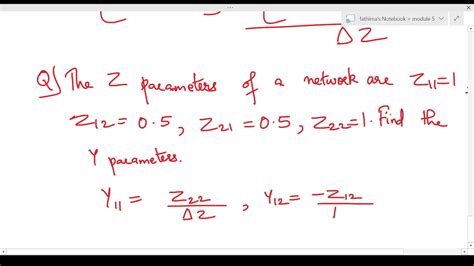 fathima's Notebook > module 5
ΔZ
Q) The Z parameters of a network are Z11=1.
Z12 = 0.5, Z21 = 0.5, Z22=1. Find the
Y parameters.
Y11 = Z22/ΔZ , Y12 = -Z12/